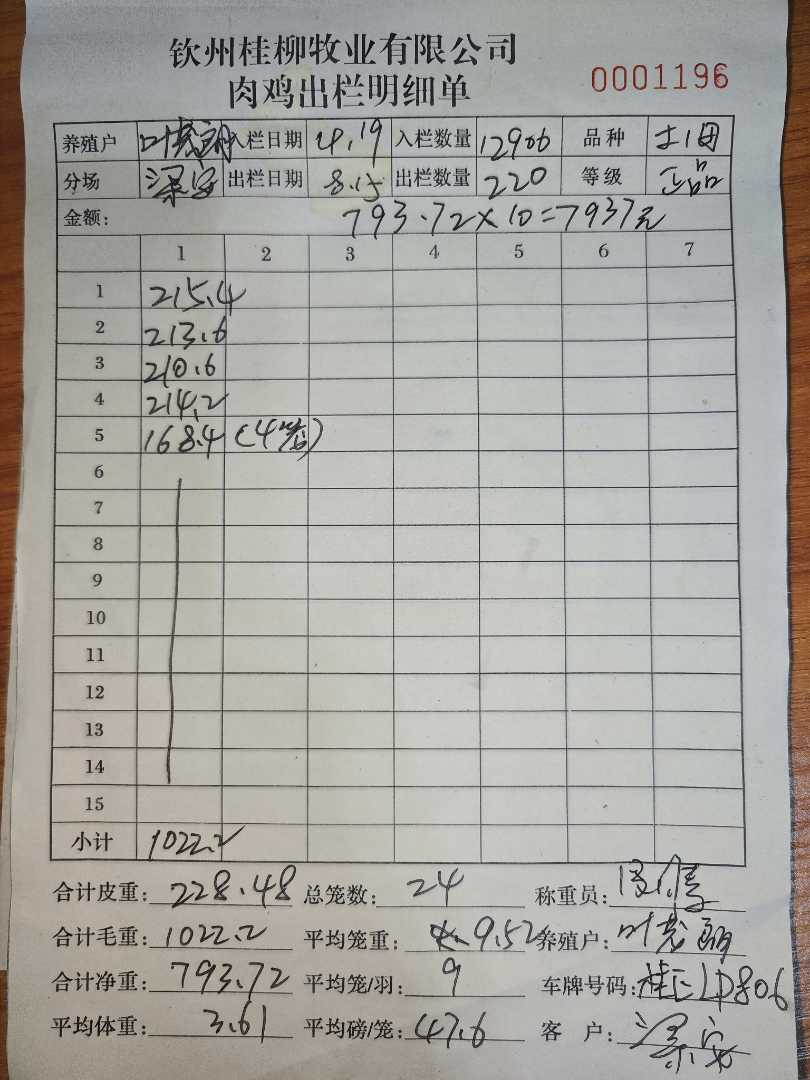 钦州桂柳牧业有限公司
肉鸡出栏明细单 0001196
养殖户 叶 入栏日期 4.19 入栏数量 12906 品种 土1
分场 梁安 出栏日期 8.15 出栏数量 220 等级 正品
金额: 793.72×10=7937元
1 2 3 4 5 6 7
1 215.4
2 213.6
3 210.6
4 214.2
5 168.4 (4笼)
6
7
8
9
10
11
12
13
14
15
小计 1022.2
合计皮重: 228.48 总笼数: 24 称重员:
合计毛重: 1022.2 平均笼重: 9.52 养殖户: 叶
合计净重: 793.72 平均笼/羽: 9 车牌号码: 桂 LD806
平均体重: 3.61 平均磅/笼: 47.6 客 户: 梁安